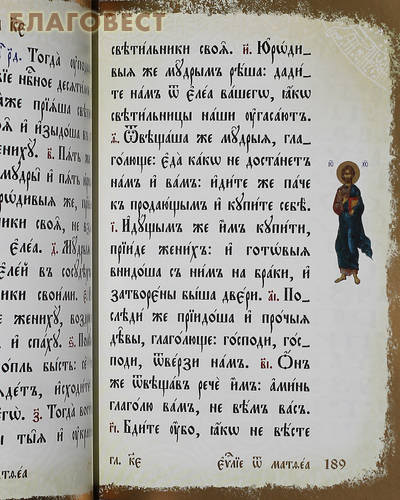 БЛАГОВЕСТ
гл. к҃е
р҃д. Тогда̀ ᲂу҆подо
твїе нбⷭ҇ное десѧти́м
а҆́же прїѧ́ша свѣт
ѧ҆̀ и҆ и҆зыдо́ша в
жениху̀. в҃. Пѧ́ть ж
мꙋ̑дры и҆ пѧ́ть
рѡ́дивыѧ же, при
ники своѧ̑, не взѧ
є҆ле́а. д҃. Мꙋ́дрыѧ
є҆ле́й въ сосꙋ́дѣхъ
никами свои́ми. є҃.
же жениху̀, воздрема
и҆ спа́хꙋ. ѕ҃. Полу́
во́пль бы́сть: сѐ
ѧде́тъ, и҆сходи́те
є҆гѡ̀. з҃. Тогда̀ воста́
ы ты̑ѧ и҆ ᲂу҆краси́
свѣти́льники своѧ̑. и҃. Ю҆рѡ́ди_
выѧ же мꙋ̑дрымъ рѣ́ша: дади́_
те на́мъ ѿ є҆ле́а ва́шегѡ, ꙗ҆́кѡ
свѣти́льницы на́ши ᲂу҆гаса́ютъ.
ѳ҃. Ѿвѣща́ша же мꙋ́дрыѧ, гла_
гѡ́люще: є҆да̀ ка́кѡ не доста́нетъ
на́мъ и҆ ва́мъ: и҆ди́те же па́че
къ продаю́щымъ и҆ кꙋпи́те себѣ̀.
і҃. И҆дꙋ́щымъ же и҆̀мъ кꙋпи́ти,
прїи́де жени́хъ: и҆ гото́выѧ
внидо́ша съ ни́мъ на бра́ки, и҆
затворе́ны бы́ша двє́ри. а҃і. По_
слѣди́ же прїидо́ша и҆ про́чыѧ
дѣ̑вы, глаго́люще: го́споди, го́с_
поди, ѿве́рзи на́мъ. в҃і. Ѻ҆́нъ
же ѿвѣща́въ речѐ и҆̀мъ: а҆ми́нь
глаго́лю ва́мъ, не вѣ́мъ ва́съ.
г҃і. Бди́те ᲂу҆̀бо, ꙗ҆́кѡ не вѣ́сте
гл. к҃е є҆ѵⷢ҇лїе ѿ матѳе́а 189